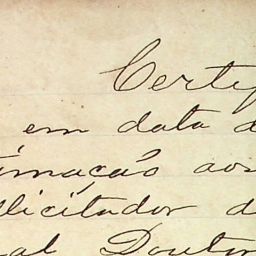 Certif
em data d
timação aos
licitador d
al Doutor